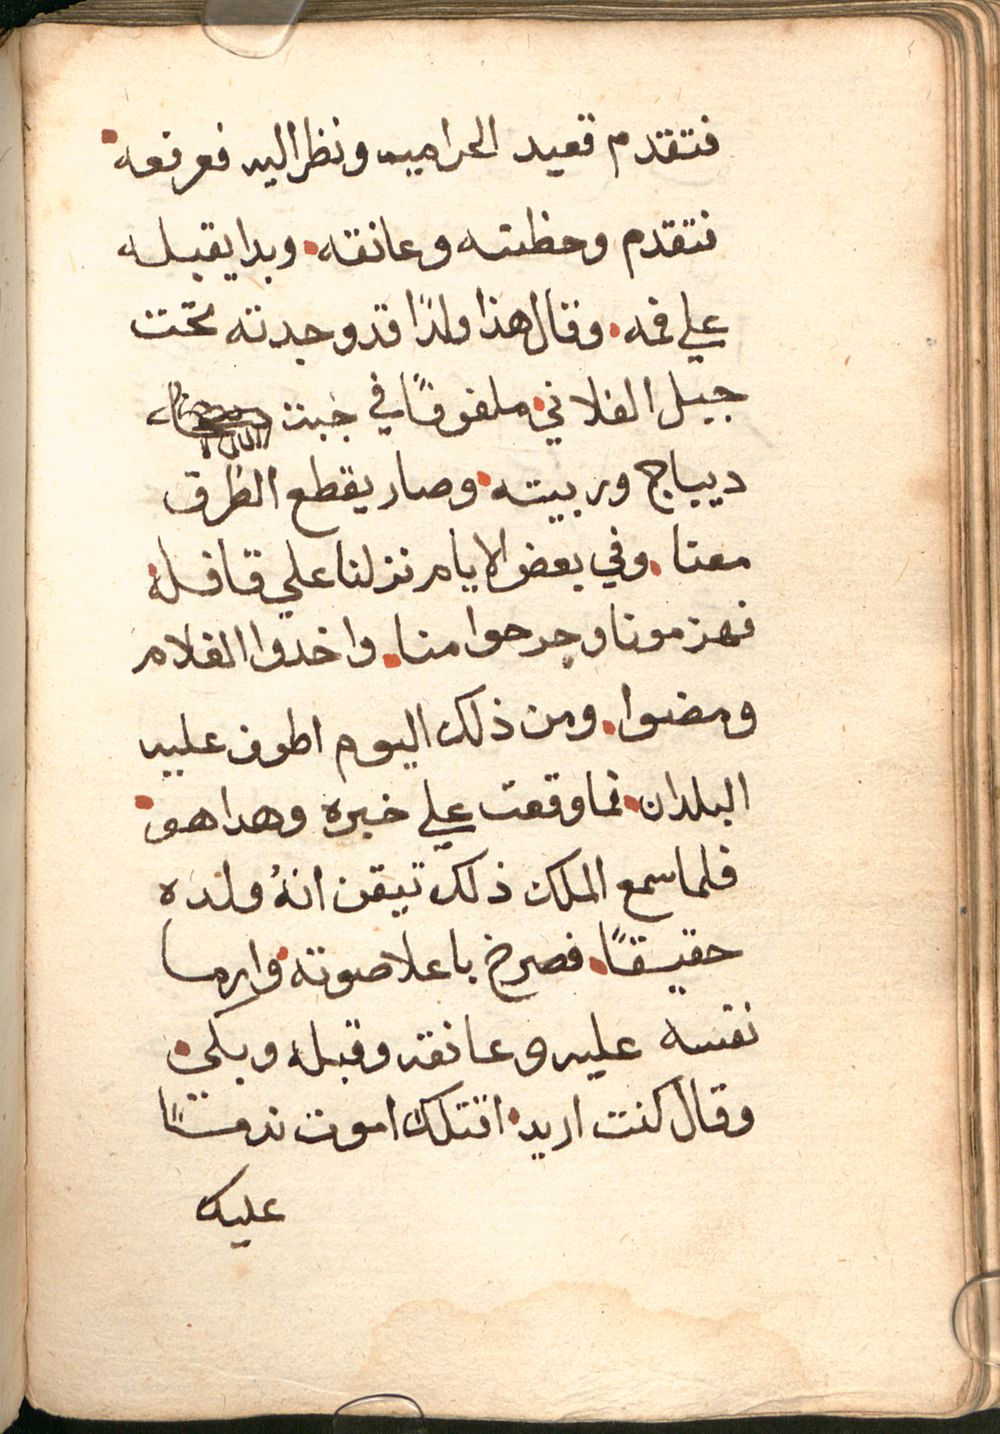 فتقدم قعيد الحراميه ونظر اليه فعرفه
فتقدم وحظنه وعانقه. وبدا يقبله
علي فمه. وقال هذا ولدًا قد وجدته تحت
جبل الفلاني. ملفوفًا في جبت
ديباج وربيته. وصار يقطع الطرق
معنا. وفي بعض الايام نزلنا علي قافله
فهزمونا وجرحوا منا. واخدوا الغلام
ومضوا. ومن ذلك اليوم اطوف عليه
البلدان. فما وقعت علي خبره وهدا هو.
فلما سمع الملك ذلك تيقن انهُ ولده
حقيقتًا. فصرخ باعلا صوته. وارما
نفسه عليه وعانقه وقبله وبكي.
وقال كنت اريد. اقتلك اموت ندمًا
عليك